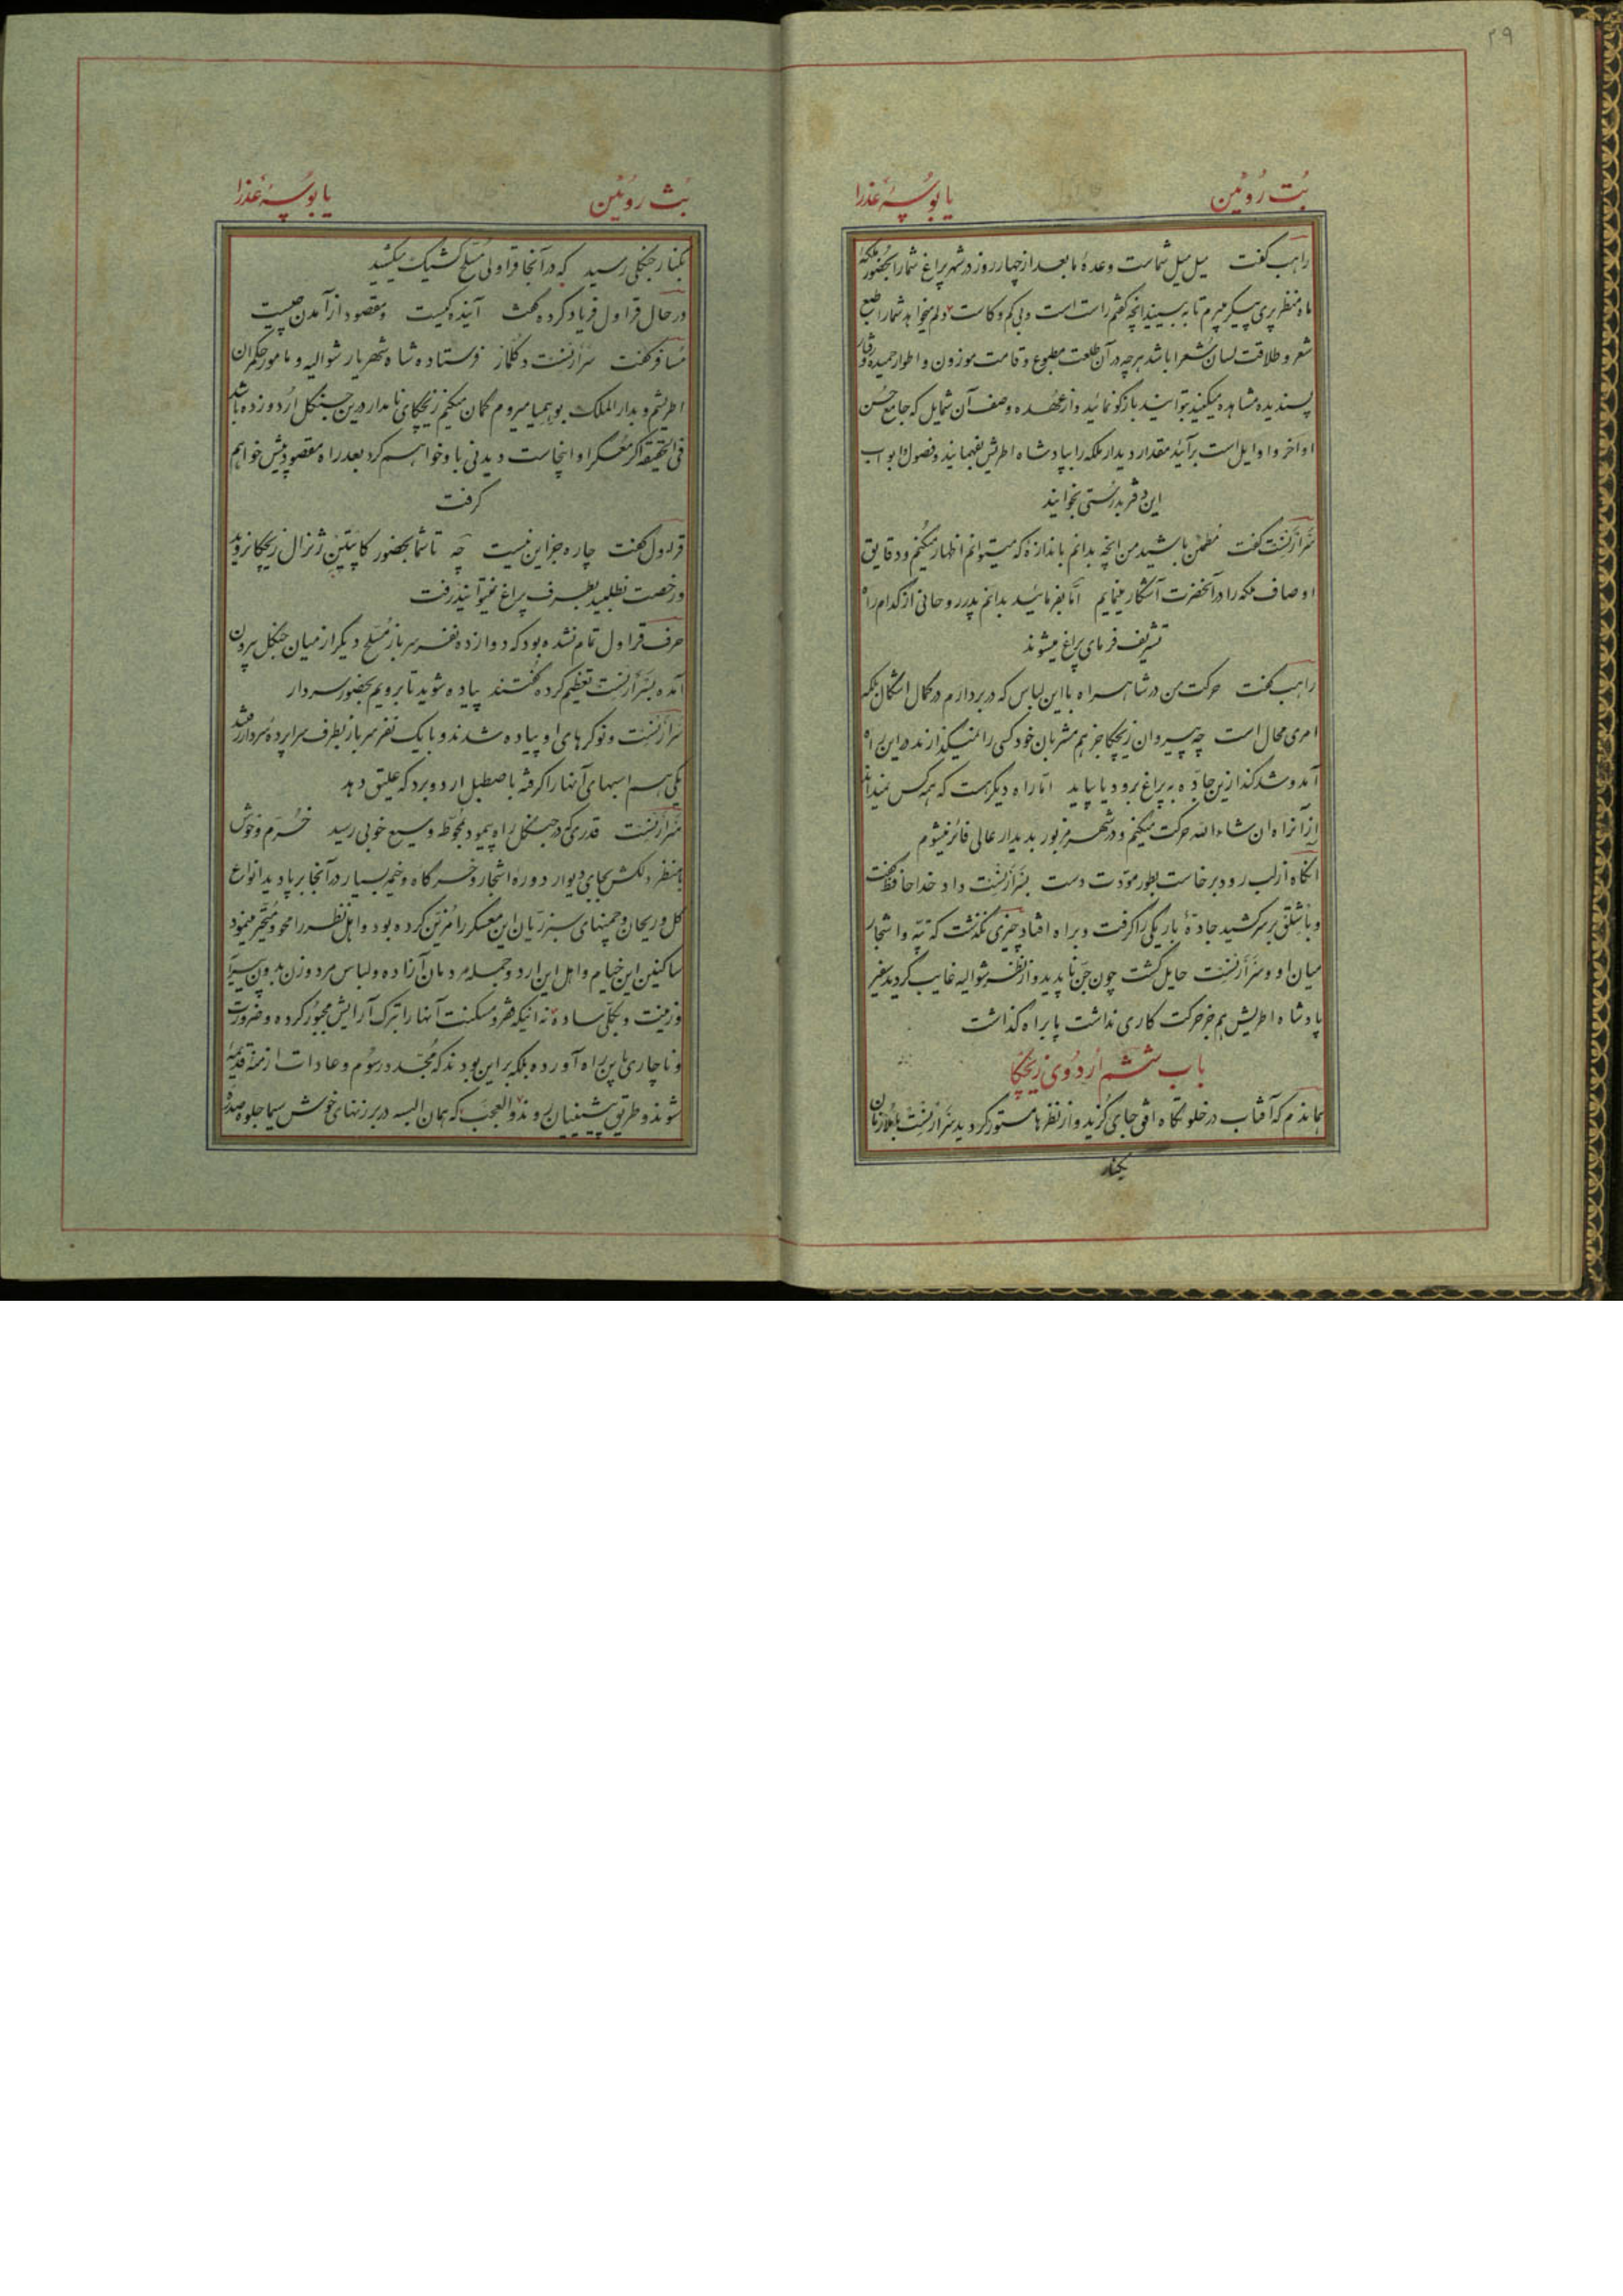 ۲۹
بُت رُوئین یا بُوسهٔ عَذرا
راهب گفت میل میل شماست وعدهٔ ما بعد از چهار روز در شهر پراغ شما را بحضور ملکهٔ
ماه منظر پری پیکر میبرم تا به بینید آنچه گفتم راست است و بی کم و کاست دلم میخواهد شما را طبع
شعر و طلاقت لسان شعرا باشد هرچه در آن طلعت مطبوع و قامت موزون و اطوار حمیده و رفتار
پسندیده مشاهده میکنید بتوانید بازگو نمائید و از عهده وصف آن شمایل که جامع حُسن
اواخر و اوایل است برآئید مقدار دیدار ملکه را بپادشاه اطریش بفهمانید و فصول و ابواب
این دفتر بدرستی بخوانید
سَرارنست گفت مطمئن باشید من آنچه بدانم باندازه که میتوانم اظهار میکنم و دقایق
اوصاف ملکه را در آنحضرت آشکار مینمایم امّا بفرمائید بدانم پدر روحانی از کدام راه
تشریف فرمای پراغ میشوند
راهب گفت حرکت من در شاهراه با این لباس که در بر دارم در کمال اشکال بلکه
امری محال است چه پیروان زیچکا جز هم مشربان خود کسی را نمیگذارند در این راه
آمد و شد کند ازین جادّه به پراغ برود یا بیاید امّا راه دیگر هست که همه کس نمیداند
از آنراه ان شاءالله حرکت میکنم و در شهر مزبور بدیدار عالی فائز میشوم
آنگاه از لب رود برخاست بطور مودّت دست بسَرارنست داد خداحافظ گفت
و باشلق بر سر کشید جادهٔ باریکی را گرفت و براه افتاد چیزی نگذشت که تپّه و اشجار
میان او و سَرارنست حایل گشت چون جنّ ناپدید و از نظر شوالیه غایب گردید سفیر
پادشاه اطریش هم جز حرکت کاری نداشت پا براه گذاشت
باب ششم اُردُوی زیچکا
هماندم که آفتاب در خلوتگاه افق جای گزید و از نظرها مستور گردید سَرارنست با ملازمان
بکنار
بُت روئین یا بوسهٔ عَذرا
بکنار جنگلی رسید که در آنجا قراولی مسلّح کشیک میکشید
در حال قراول فریاد کرده گفت آینده کیست و مقصود از آمدن چیست
مسافر گفت سَرارنست فرستاده شاه شهریار شوالیه و مامور حکمران
اطریشم و بدارالملک بوهمیا میروم گمان میکنم زیچکای نامدار درین جنگل اُردو زده باشد
فی الحقیقه اگر معسکر او اینجاست دیدنی با او خواهم کرد بعد راه مقصود پیش خواهم
گرفت
قراول گفت چاره جز این نیست چه تا شما بحضور کاپیتن ژنرال زیچکا نروید
و رخصت نطلبید بطرف پراغ نمیتوانید رفت
حرف قراول تمام نشده بود که دوازده نفر سرباز مسلّح دیگر از میان جنگل بیرون
آمده بسَرارنست تعظیم کرده گفتند پیاده شوید تا برویم بحضور سردار
سَرارنست و نوکرهای او پیاده شدند و با یک نفر سرباز بطرف سراپرده سردار رفتند
یکی هم اسبهای آنها را گرفته باصطبل اردو برد که علیق دهد
سَرارنست قدری که در جنگل راه پیمود بمحوّطه وسیع خوبی رسید خُرّم و خوش
با منظر دلکش بجای دیوار دوره اشجار و خرگاه و خیم بسیار در آنجا برپا دید انواع
گل و ریحان و چمنهای سبز زیان این معسکر را مزیّن کرده بود و اهل نظر را محو و متحیّر مینمود
ساکنین این خیام و اهل این اردو جمله مردمان آزاده و لباس مرد و زن بدون پیرایه
و زینت و بکلّی ساده نه اینکه فقر و مسکنت آنها را بترک آرایش مجبور کرده و ضرورت
و ناچاری باین راه آورده بلکه براین بودند که مجدّد رسوم و عادات ازمنه قدیمه
شوند و طریق پیشینیان روند و العجب که همان البسه در بر زنهای خوش سیما جلوه